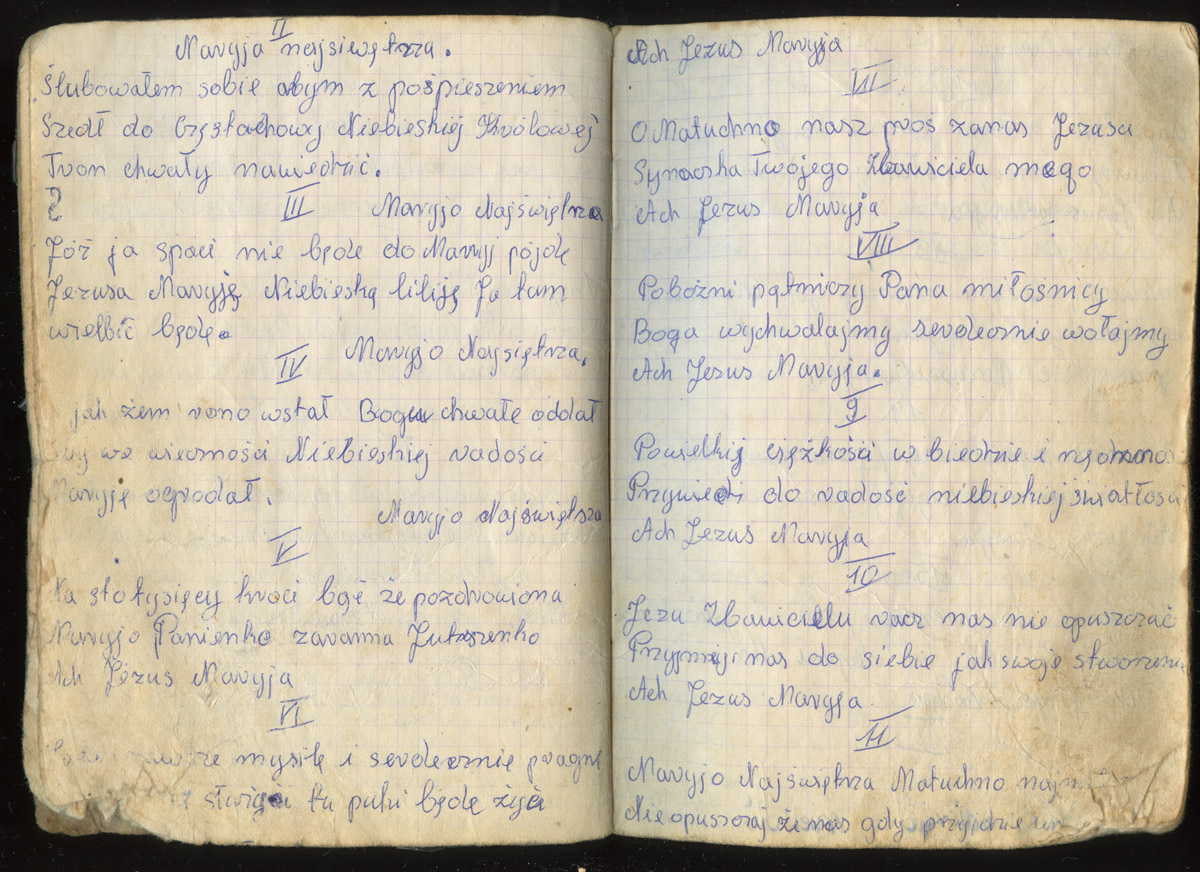 II
Maryja najsiwętrza.
Ślubowałem sobie abym z pośpieszeniem
Szedł do Częstochowy Niebieskiej Królowej
Tron chwały nawiedzić.
III Maryjo Najświętrza
Jóż ja spaci nie będe do Maryj pójdę
Jezusa Maryję Niebieską liliję Ja tam
wielbić będe.
IV Maryjo Najsiętrza.
jak żem rono wstał Bogu chwałe oddał
we wieczności Niebieskiej radości
Maryję oglodał.
Maryjo Najświętsza
V
Na sto tysięcy troci bąć że pozdrowiona
Maryjo Panienko zaranna Jutrzenko
Ach Jezus Maryja
VI
myslę i serdecznię pragnę
tu puki będę żyć
Ach Jezus Maryja
VII
O Matuchno nasz proś zanas Jezusa
Synaczka Twojego Zbawiciela mego
Ach Jezus Maryja
VIII
Pobożni pątniczy Pana miłośnicy
Boga wychwalajmy serdecznie wołajmy
Ach Jezus Maryja.
9
Powielkij ciężkości w biedzie i
Przywiedi do radość niebieskiej światłośu
Ach Jezus Maryja
10
Jezu Zbawicielu racz nas nie opuszczać
Przyjmij nas do siebie jak swoje
Ach Jezus Maryja
11
Maryjo Najświętrza Matuchno
Nie opuszczaj że nas gdy przyjdzie